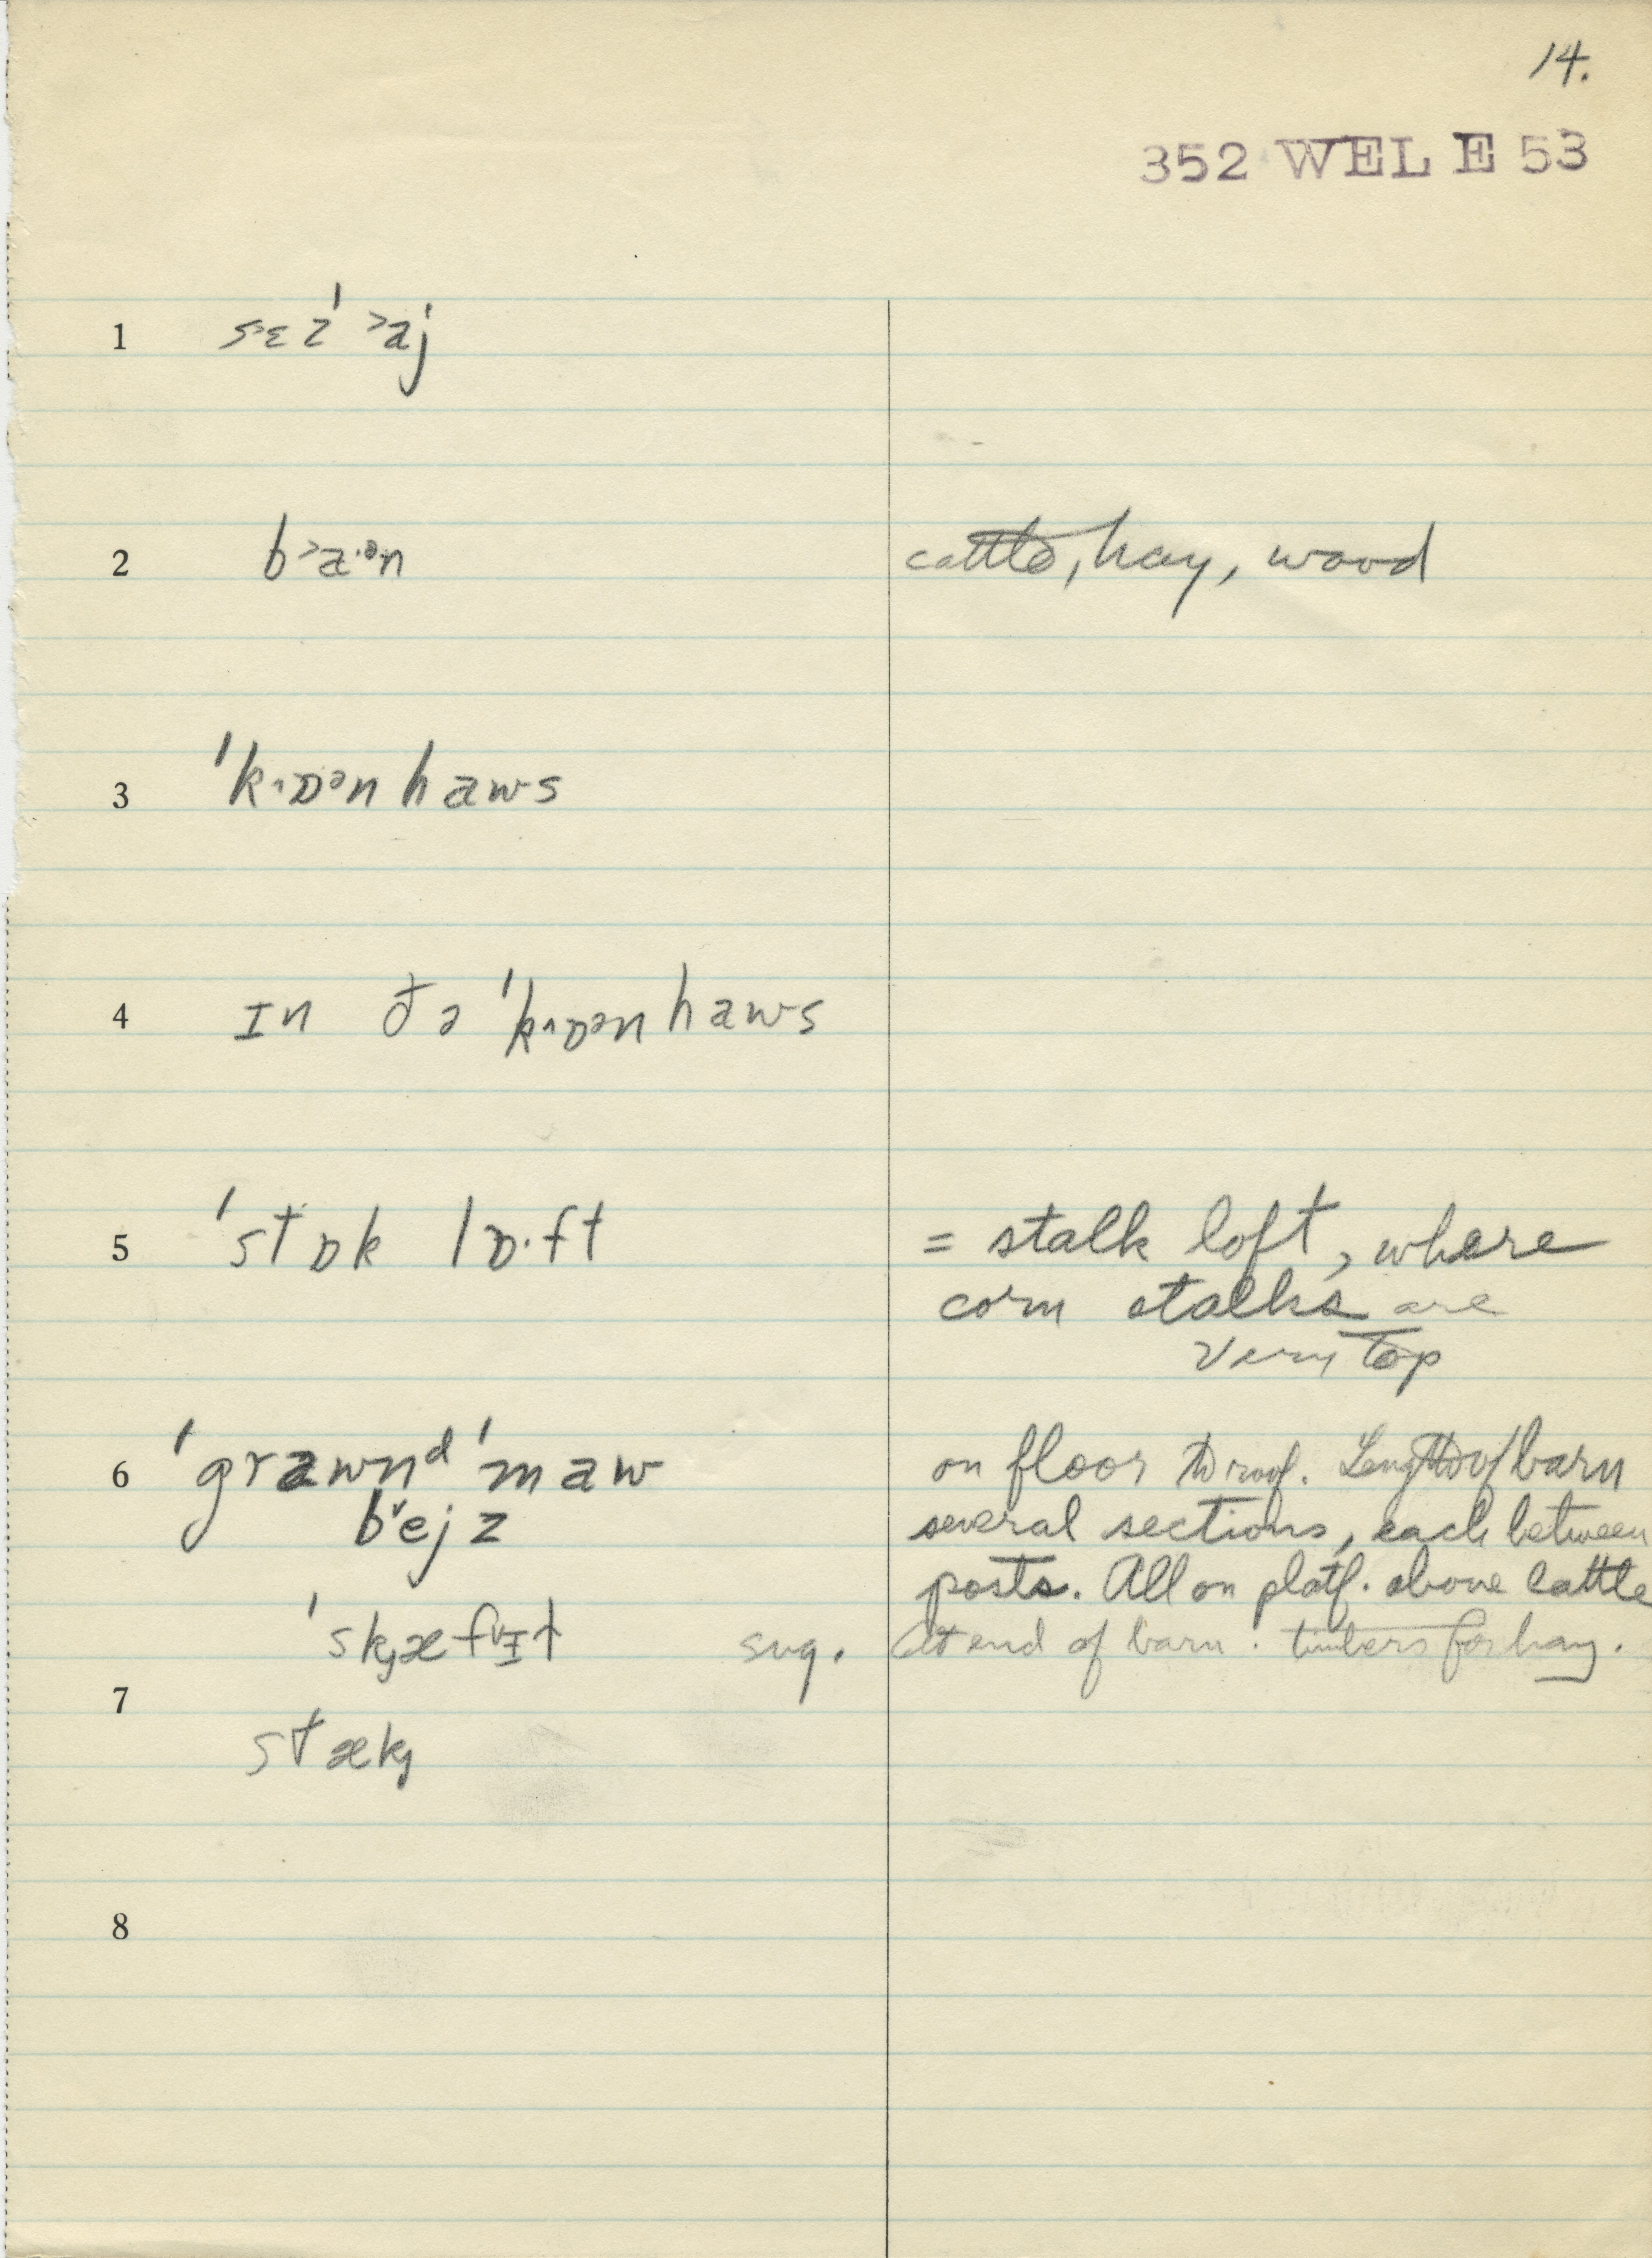 14.
352 WEL E 53
1 s˃ɛz ˈ˃aj
2 b˃a·ᵊ·n cattle, hay, wood
3 ˈk˄ɒᵊn haws
4 ɪn ðə ˈk˄ɒᵊn haws
5 ˈstɒk lɒ·ft = stalk loft, where
corn stalks are
very top
6 ˈgrawnᵈ ˈmaw on floor to roof. Length of barn
b˅ejz several sections, each between
posts. All on platf. above cattle
ˈskæf˅ɪt sug. At end of barn. timbers for hay.
7
stæk
8